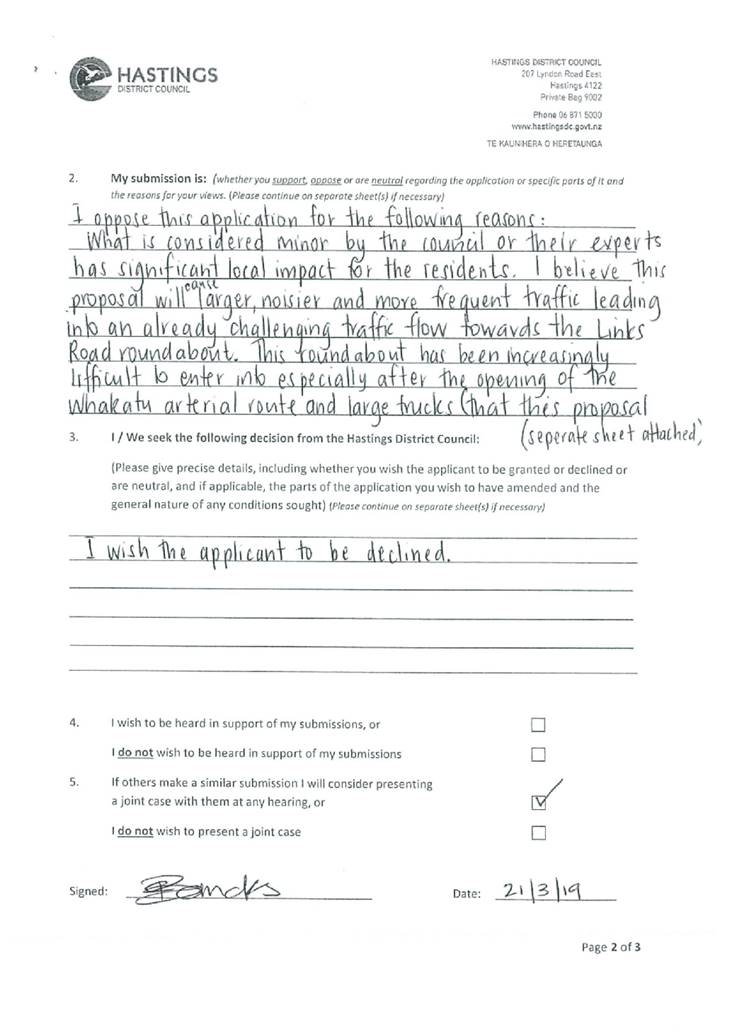 HASTINGS
DISTRICT COUNCIL
HASTINGS DISTRICT COUNCIL
207 Lyndon Road East
Hastings 4122
Private Bag 9002
Phone 06 871 5000
www.hastingsdc.govt.nz
TE KAUNIHERA O HERETAUNGA
2. My submission is: (whether you support, oppose or are neutral regarding the application or specific parts of it and
the reasons for your views. (Please continue on separate sheet(s) if necessary)
I oppose this application for the following reasons:
What is considered minor by the council or their experts
has significant local impact for the residents. I believe this
proposal will cause larger, noisier and more frequent traffic leading
into an already challenging traffic flow towards the Links
Road roundabout. This roundabout has been increasingly
difficult to enter into especially after the opening of the
Whakatu arterial route and large trucks (that this proposal
(seperate sheet attached)
3. I / We seek the following decision from the Hastings District Council:
(Please give precise details, including whether you wish the applicant to be granted or declined or
are neutral, and if applicable, the parts of the application you wish to have amended and the
general nature of any conditions sought) (Please continue on separate sheet(s) if necessary)
I wish the applicant to be declined.
4. I wish to be heard in support of my submissions, or
I do not wish to be heard in support of my submissions
5. If others make a similar submission I will consider presenting
a joint case with them at any hearing, or
I do not wish to present a joint case
Signed:
Date: 21/3/19
Page 2 of 3